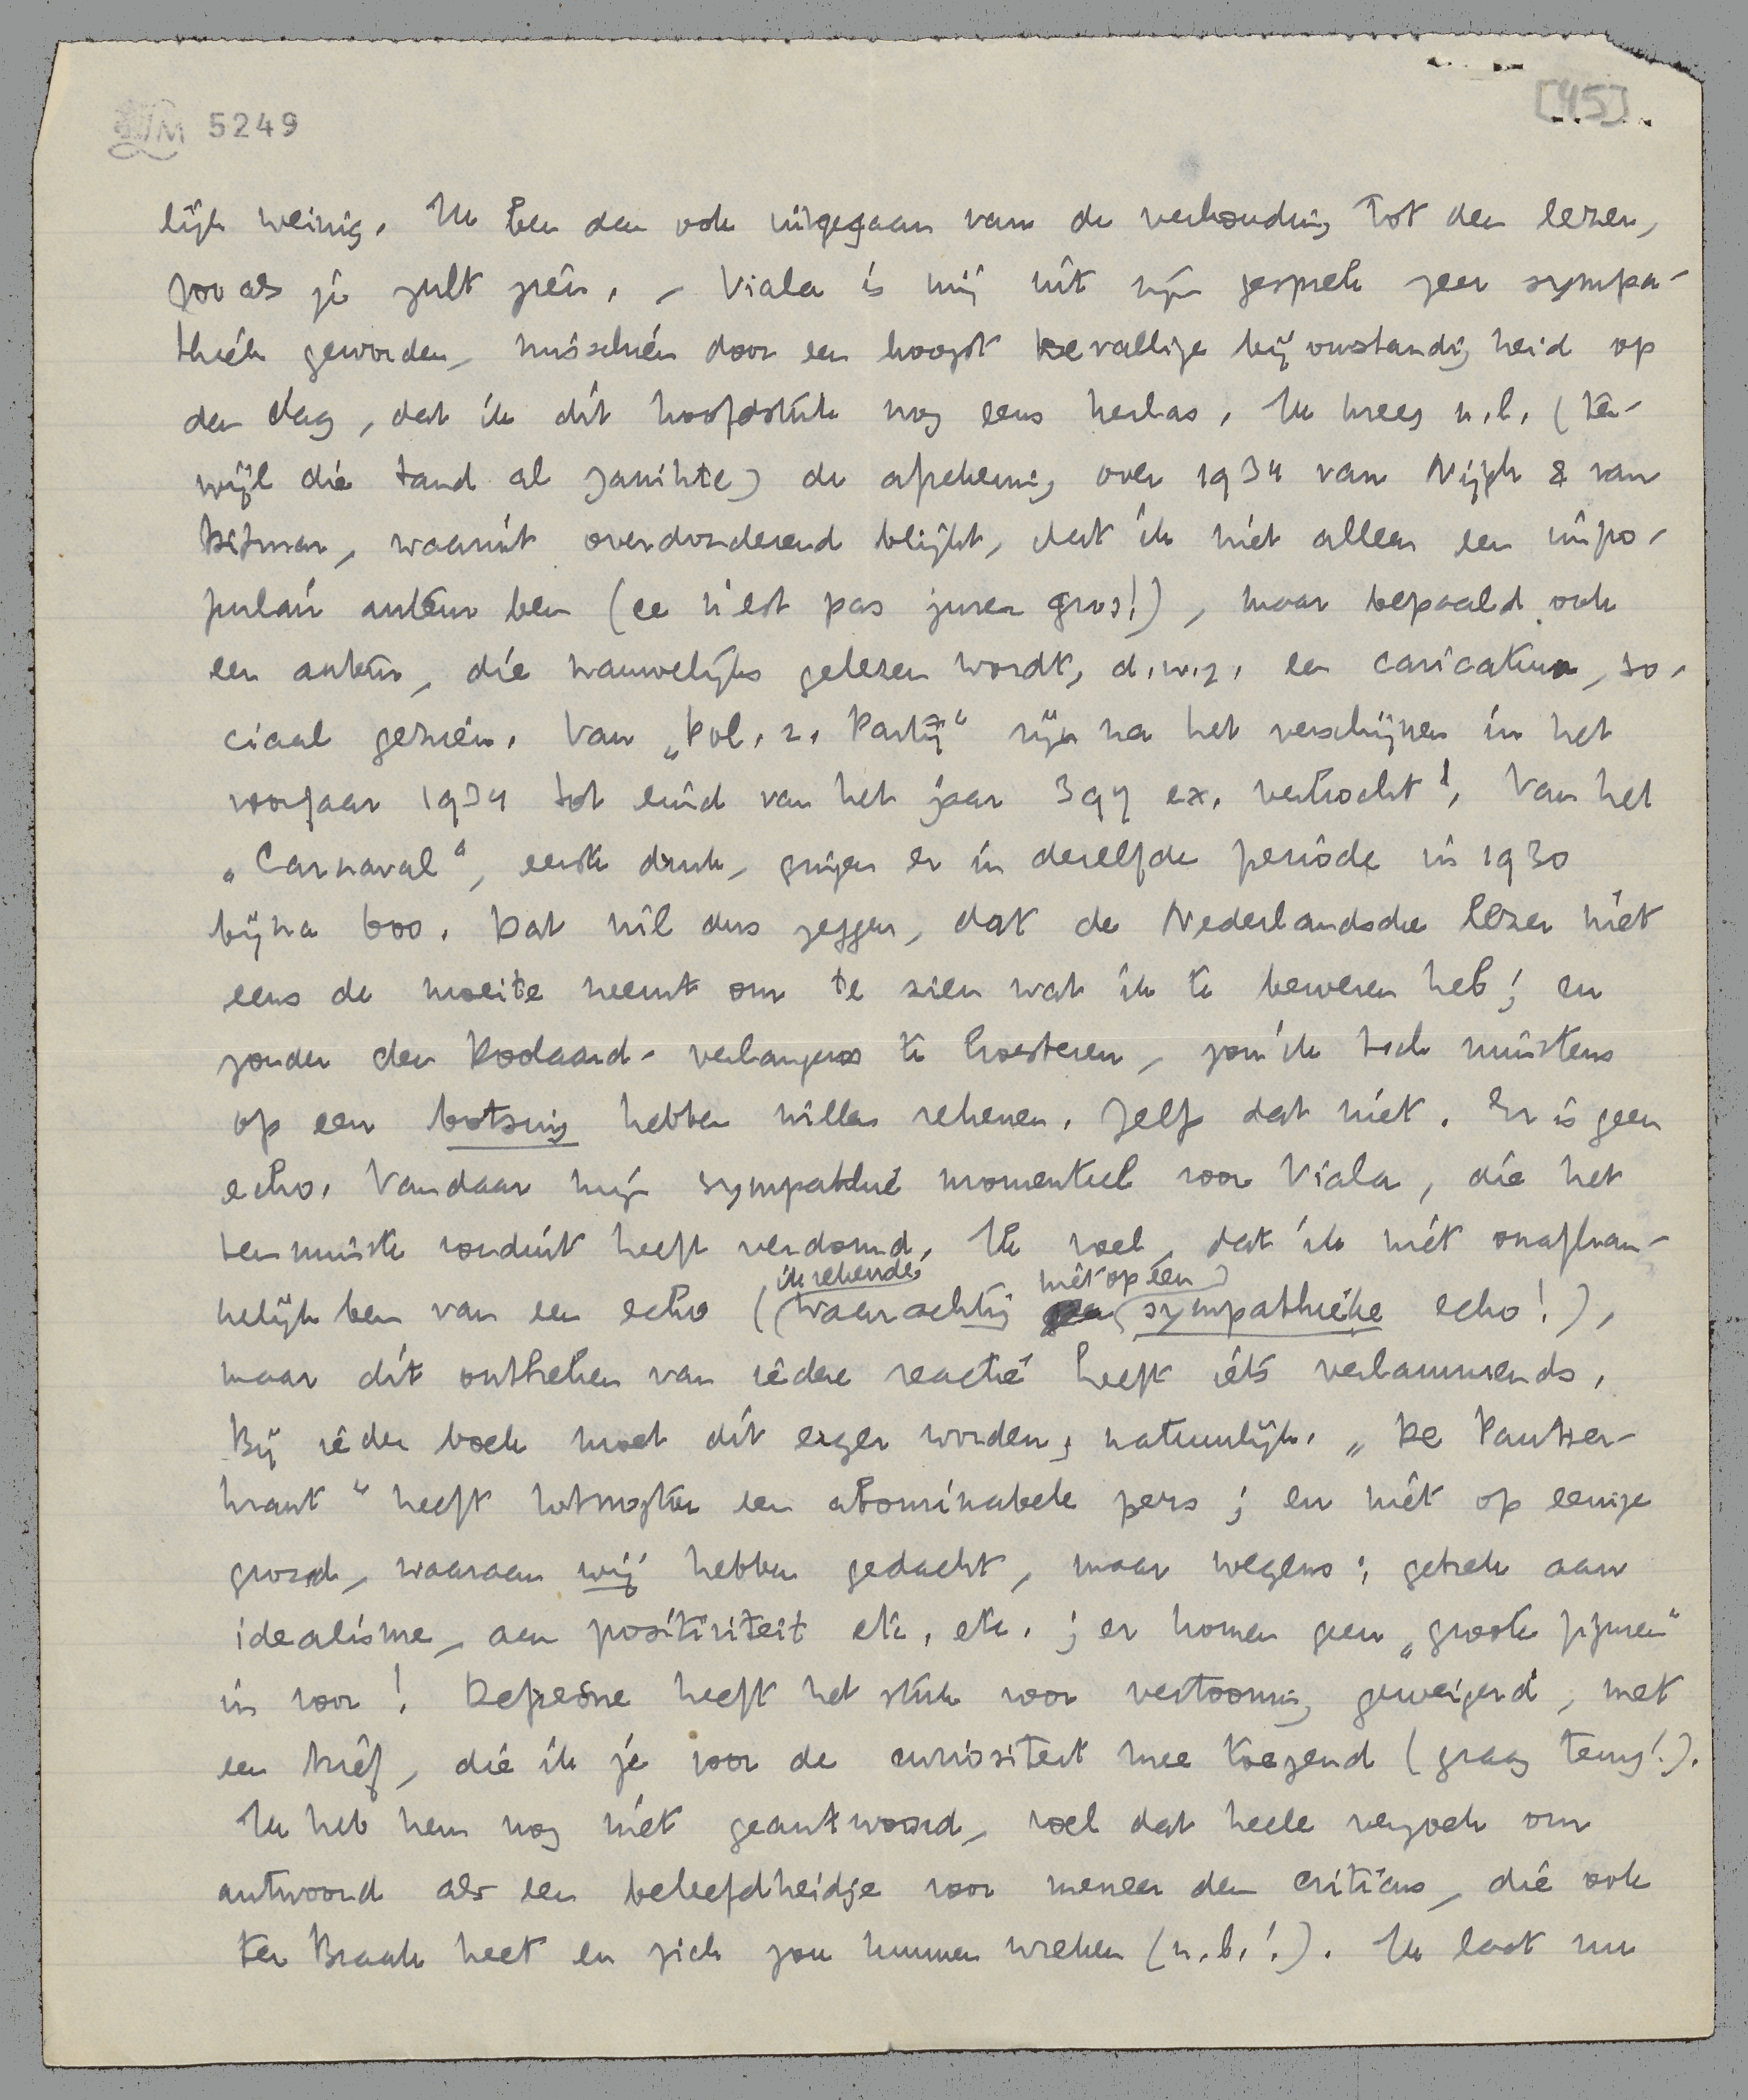 5249
[45]
lijk weinig. Ik ben dan ook uitgegaan van de verhouding tot den lezer,
zooals je zult zien. – Viala is mij uit zijn gesprek zeer sympa-
thiek geworden, misschien door een hoogst toevallige bijomstandigheid op
den dag, dat ik dit hoofdstuk nog eens herlas. Ik kreeg n.l. (ter-
wijl die tand al janikte) de afrekening over 1934 van Nijgh & van
Ditmar, waaruit overdonderend blijkt, dat ik niet alleen een impo-
pulair auteur ben (ce n'est pas grave!), maar bepaald ook
een auteur, die nauwelijks gelezen wordt, d.w.z. een caricatuur, so-
ciaal gezien. Van „Pol. z. Partij" zijn na het verschijnen in het
voorjaar 1934 tot eind van het jaar 397 ex. verkocht! Van het
„Carnaval", eerste druk, gingen er in dezelfde periode in 1930
bijna 600. Dat wil dus zeggen, dat de Nederlandsche lezer niet
eens de moeite neemt om te zien wat ik te beweren heb; en
zonder den Rodaard-verlangens te koesteren, zou ik toch minstens
op een botsing hebben willen rekenen. Zelfs dat niet. Er is geen
echo. Vandaar mijn sympathie momenteel voor Viala, die het
tenminste ronduit heeft verdomd. Ik voel, dat ik niet onafhan-
kelijk ben van een echo (ik rekende waarachtig niet op één sympathieke echo!),
maar dit ontbreken van iedere reactie heeft iets verlammends.
Bij ieder boek moet dit erger worden, natuurlijk. „De Pantser-
krant" heeft hotnogtoe een abominabele pers; en niet op eenige
grond, waaraan wij hebben gedacht, maar wegens: gebrek aan
idealisme, aan positiviteit etc. etc.; er komen geen „groote figuren"
in voor! Defresne heeft het stuk voor vertooning geweigerd, met
een brief, die ik je voor de curiositeit mee toezend (graag terug!).
Ik heb hem nog niet geantwoord, voel dat heele verzoek om
antwoord als een beleefdheidje voor meneer den criticus, die ook
ter Braak heet en zich zou kunnen wreken (n.b.!). Ik laat nu